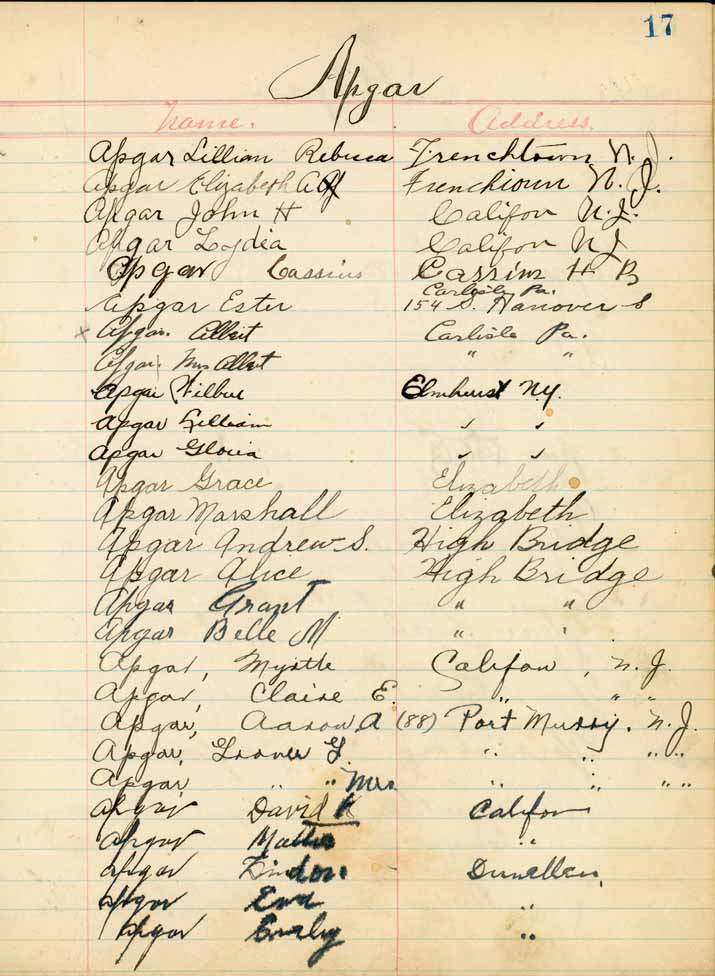 17
Apgar
Name. Address.
Apgar Lillian Rebecca Frenchtown N. J.
Apgar Elizabeth A Frenchtown N. J.
Apgar John H Califon N.J.
Apgar Lydia Califon N J
Apgar Cassius
Carlisle Pa.
Apgar Ester 154 S. Hanover S
x Apgar. Albert Carlisle Pa.
Apgar. Mrs Albert " "
Apgar Wilbur Elmhurst N.Y.
Apgar Lillian " "
Apgar Gloria " "
Apgar Grace Elizabeth
Apgar Marshall Elizabeth
Apgar Andrew S. High Bridge
Apgar Alice High Bridge
Apgar Grant " "
Apgar Belle M " "
Apgar, Myrtle Califon, N. J.
Apgar, Claire E. " " "
Apgar, Aaron A (88) Port Murry. N. J.
Apgar, " " " "
Apgar, " " Mrs. " " " "
Apgar David K Califon
Apgar "
Apgar Dunellen,
Apgar "
Apgar "